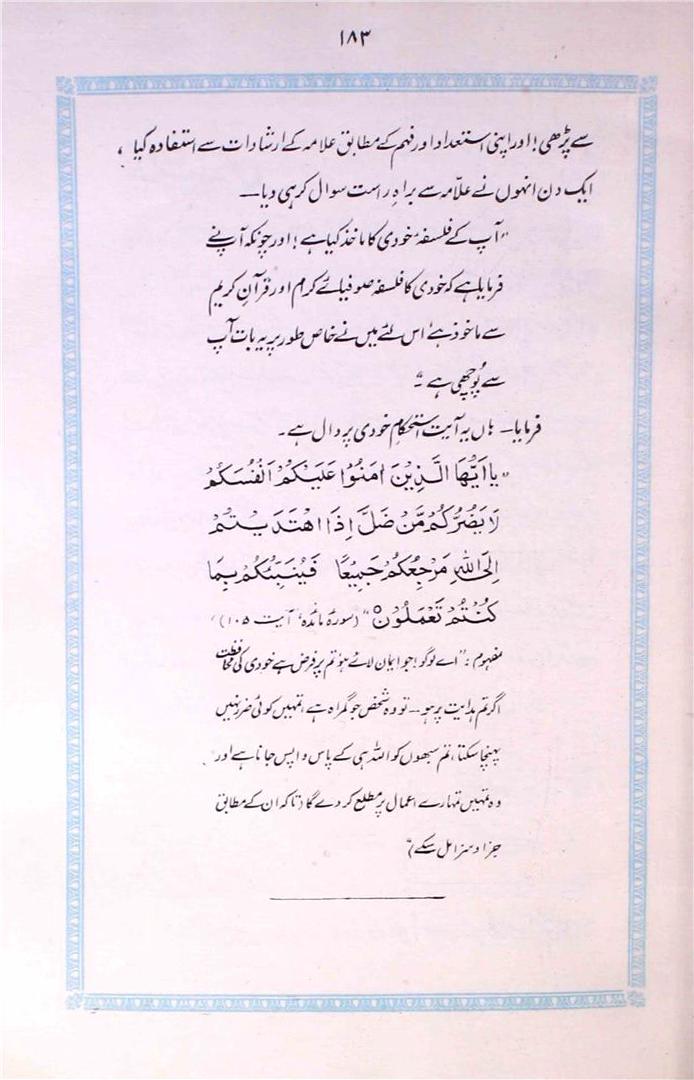 ۱۸۳
سے پڑھی! اور اپنی استعداد اور فہم کے مطابق علامہ کے ارشادات سے استفادہ کیا،
ایک دن انہوں نے علّامہ سے براہِ راست سوال کر ہی دیا—
"آپ کے فلسفۂ خودی کا ماخذ کیا ہے! اور چونکہ آپ نے
فرمایا ہے کہ خودی کا فلسفہ صوفیائے کرام اور قرآنِ کریم
سے ماخوذ ہے اس لئے میں نے خاص طور پر یہ بات آپ
سے پُوچھی ہے۔"
فرمایا— ہاں یہ آیت استحکامِ خودی پر دال ہے۔
"يَا اَيُّهَا الَّذِيْنَ اٰمَنُوْا عَلَيْكُمْ اَنْفُسَكُمْ
لَا يَضُرُّكُمْ مَّنْ ضَلَّ اِذَا اهْتَدَيْتُمْ
اِلَى اللهِ مَرْجِعُكُمْ جَمِيْعًا فَيُنَبِّئُكُمْ بِمَا
كُنْتُمْ تَعْمَلُوْنَ" (سورۂ مائدہ، آیت ۱۰۵)
مفہوم: "اے لوگو! جو ایمان لائے ہو تم پر فرض ہے خودی کی محافظت
اگر تم ہدایت پر ہو— تو وہ شخص جو گمراہ ہے، تمہیں کوئی ضرر نہیں
پہنچا سکتا، تم سبھوں کو اللہ ہی کے پاس واپس جانا ہے اور
وہ تمہیں تمہارے اعمال پر مطلع کر دے گا (تاکہ ان کے مطابق
جزا و سزا مل سکے)"